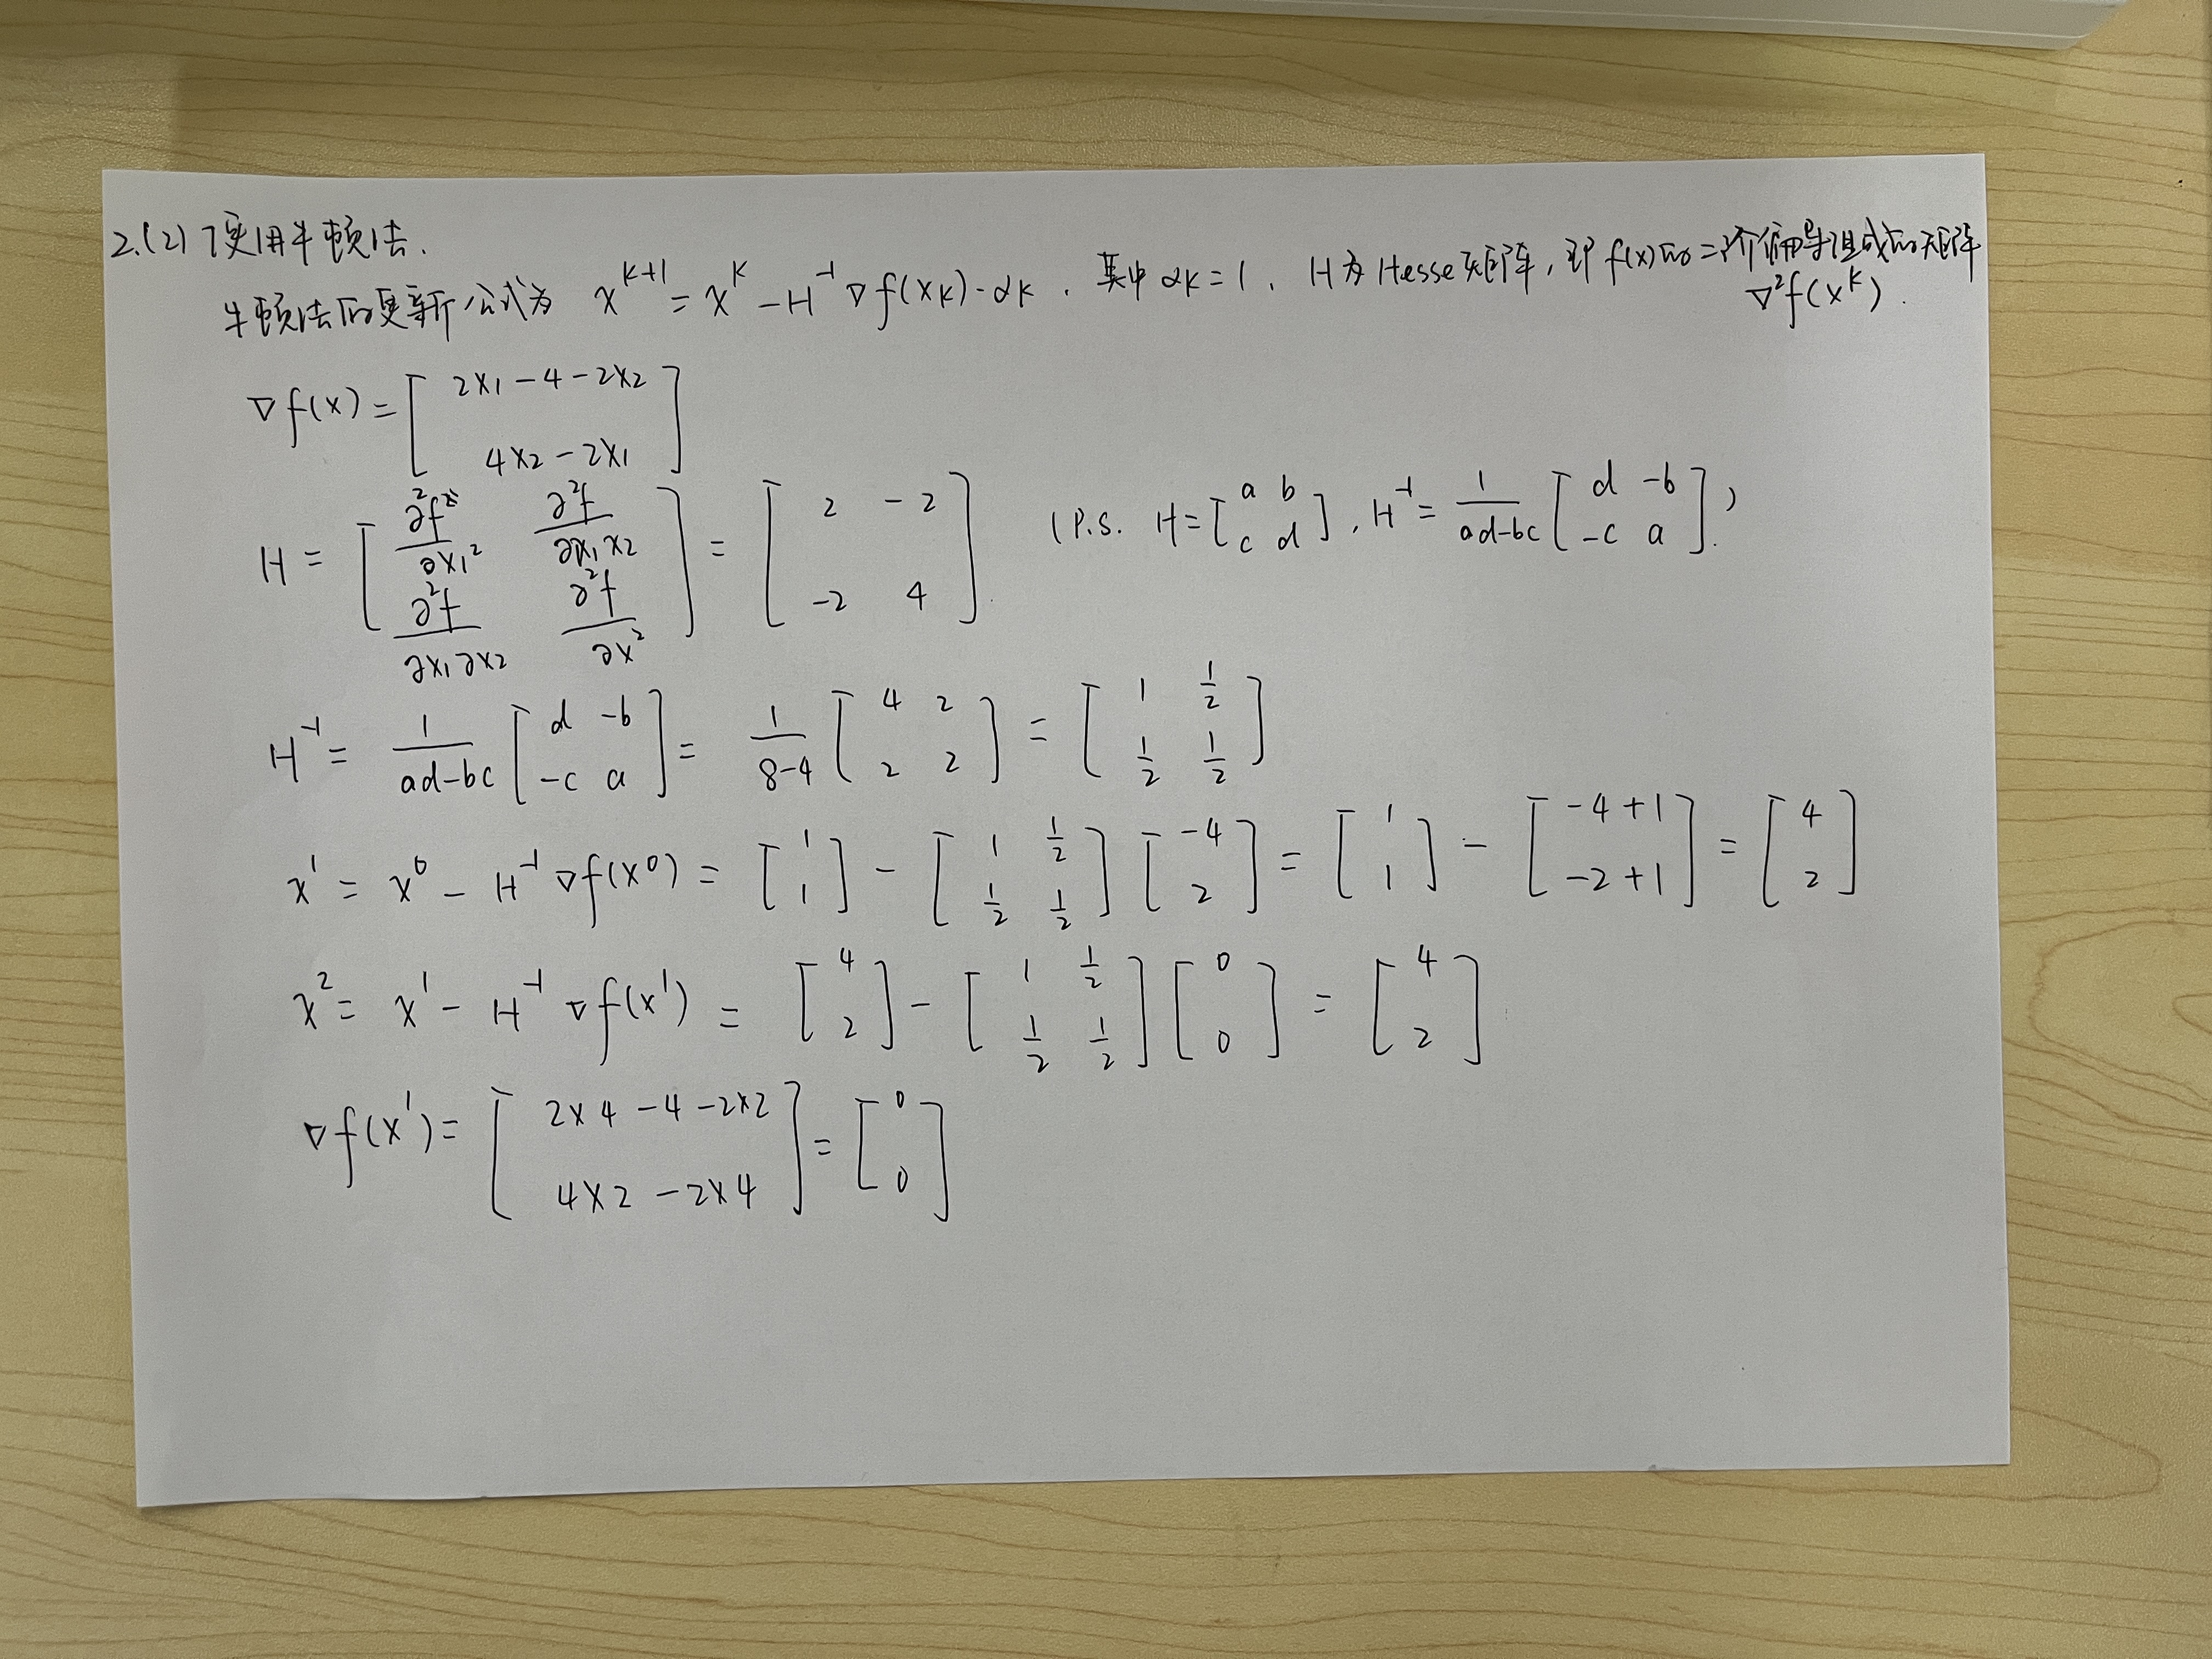 2.(2) 使用牛顿法.
牛顿法的更新公式为 x^{k+1} = x^k - H^{-1} ∇f(xk)·αk . 其中 αk=1 . H为Hesse矩阵, 即 f(x)的二阶偏导组成的矩阵
∇²f(x^k) .
∇f(x) = [ 2x1-4-2x2 ; 4x2-2x1 ]
H = [ ∂²f/∂x1² ∂²f/∂x1x2 ; ∂²f/∂x1∂x2 ∂²f/∂x² ] = [ 2 -2 ; -2 4 ]. (P.S. H=[ a b ; c d ], H^{-1} = 1/(ad-bc) [ d -b ; -c a ].)
H^{-1} = 1/(ad-bc) [ d -b ; -c a ] = 1/(8-4) [ 4 2 ; 2 2 ] = [ 1 1/2 ; 1/2 1/2 ]
x^1 = x^0 - H^{-1} ∇f(x^0) = [ 1 ; 1 ] - [ 1 1/2 ; 1/2 1/2 ] [ -4 ; 2 ] = [ 1 ; 1 ] - [ -4+1 ; -2+1 ] = [ 4 ; 2 ]
x^2 = x^1 - H^{-1} ∇f(x^1) = [ 4 ; 2 ] - [ 1 1/2 ; 1/2 1/2 ] [ 0 ; 0 ] = [ 4 ; 2 ]
∇f(x^1) = [ 2×4-4-2×2 ; 4×2-2×4 ] = [ 0 ; 0 ]